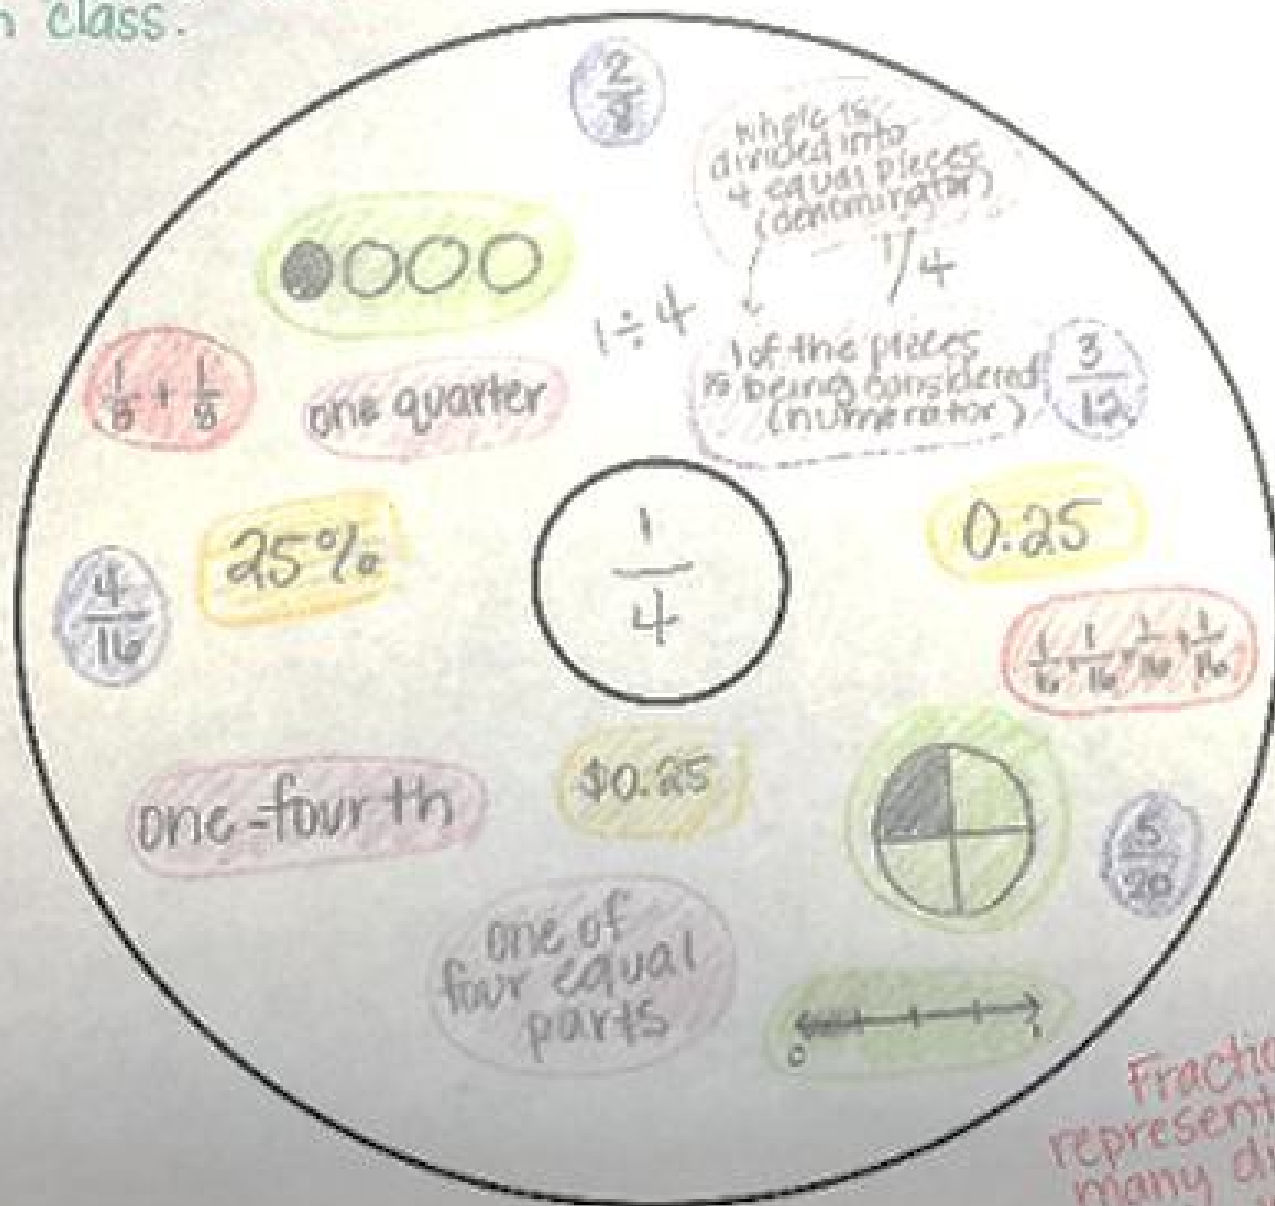 n class.
2/8
whole is
divided into
4 equal pieces
(denominator)
1/4
1÷4
1 of the pieces
is being considered
(numerator)
3/12
1/8 + 1/8
one quarter
25%
1/4
0.25
4/16
1/16 + 1/16 + 1/16 + 1/16
one-fourth
$0.25
5/20
one of
four equal
parts
0 1
Fractio
represent
many di